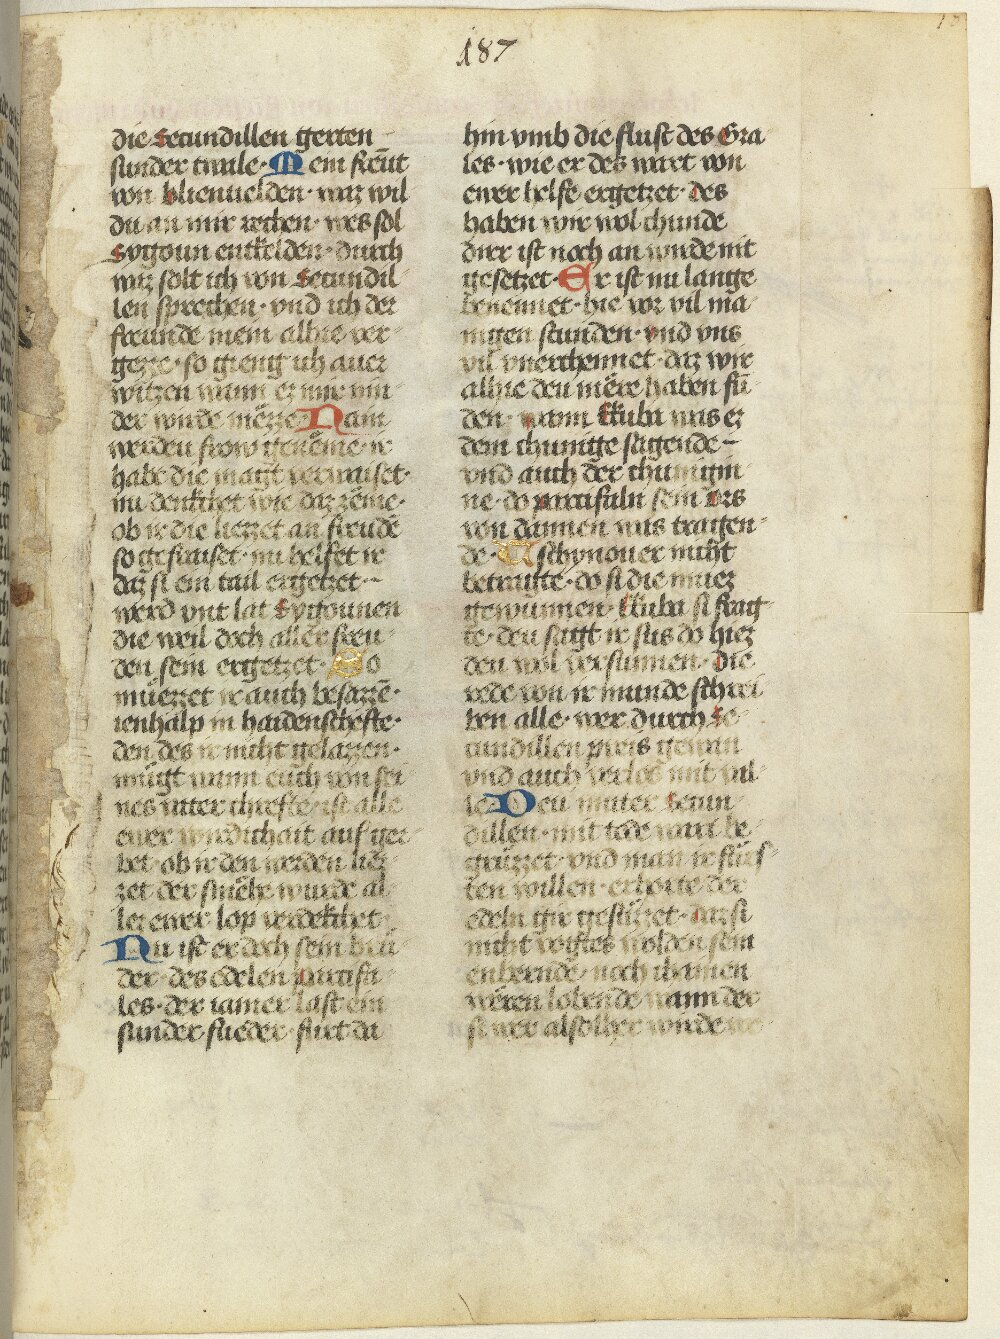 187
die Secundillen gerten
sunder twale · Mein freűt
von blienuelden · waz wil
du an mir rechen · wes sol
Sygoun entkelden · durch
wiz solt ich von Secundil
len sprechen · vnd ich der
freunde mein alhie ver
gezze · so gieng ich auer
witzen wann ez mir min
der wurde mezze · Nain
werden frow geneme · ir
habt die magt verwaiset ·
nu denkket wie daz zeme ·
ob ir die herzet an freude
so gefraiset · nu helfet ir
daz si ein tail ergetzet
werd vnt lat Sygounen
die weil doch aller freu
den sein ergetzet · So
müezzet ir auch besazzē
ienhalp in haidenschefte ·
den des ir nicht gelazzen ·
mügt wann euch von sei
nes vater chrefte · ist alle
ewer wirdichait auf ger
bet · ob ir den werden
zet der smehe wurde al
lez ewer lop verdekket
Nu ist er doch sein bru
der · des edelen parcifa
les · der iamer last ein
sunder fueder · furt da
hin vmb die flust des Gra
les · wie er des wart von
ewer helfe ergetzet · des
haben wir wol chunde
dirr ist noch an wirde nit
gesetzet · Er ist nu lange
benennet · hie vor vil ma
nigen stunden · vnd vns
vil vnerchennet · daz wir
alhie den mere haben fu
den · wann Ekuba was ez
dem chunige sagende
vnd auch der chunigin
ne · do parcifaln sein ors
von dannen was tragen
de · Tschynouer nicht
betragte · do si die muez
gewunnen · Ekuba si frag
te · deu sagt ir sus do hiez
den wol versunnen · Die
rede von ir munde schrei
ben alle · wer durch Se
cundillen preis gewan
vnd auch verlos mit val
le · Deu muter Secun
dillen · mit tode wart be
grüzzet · vnd man ir
ten willen · erhorte der
edeln gir gesüzzet · daz si
nicht vogtes wolden sein
enbernde · noch chainen
weren lobende wann der
si wer alsolher wirde we